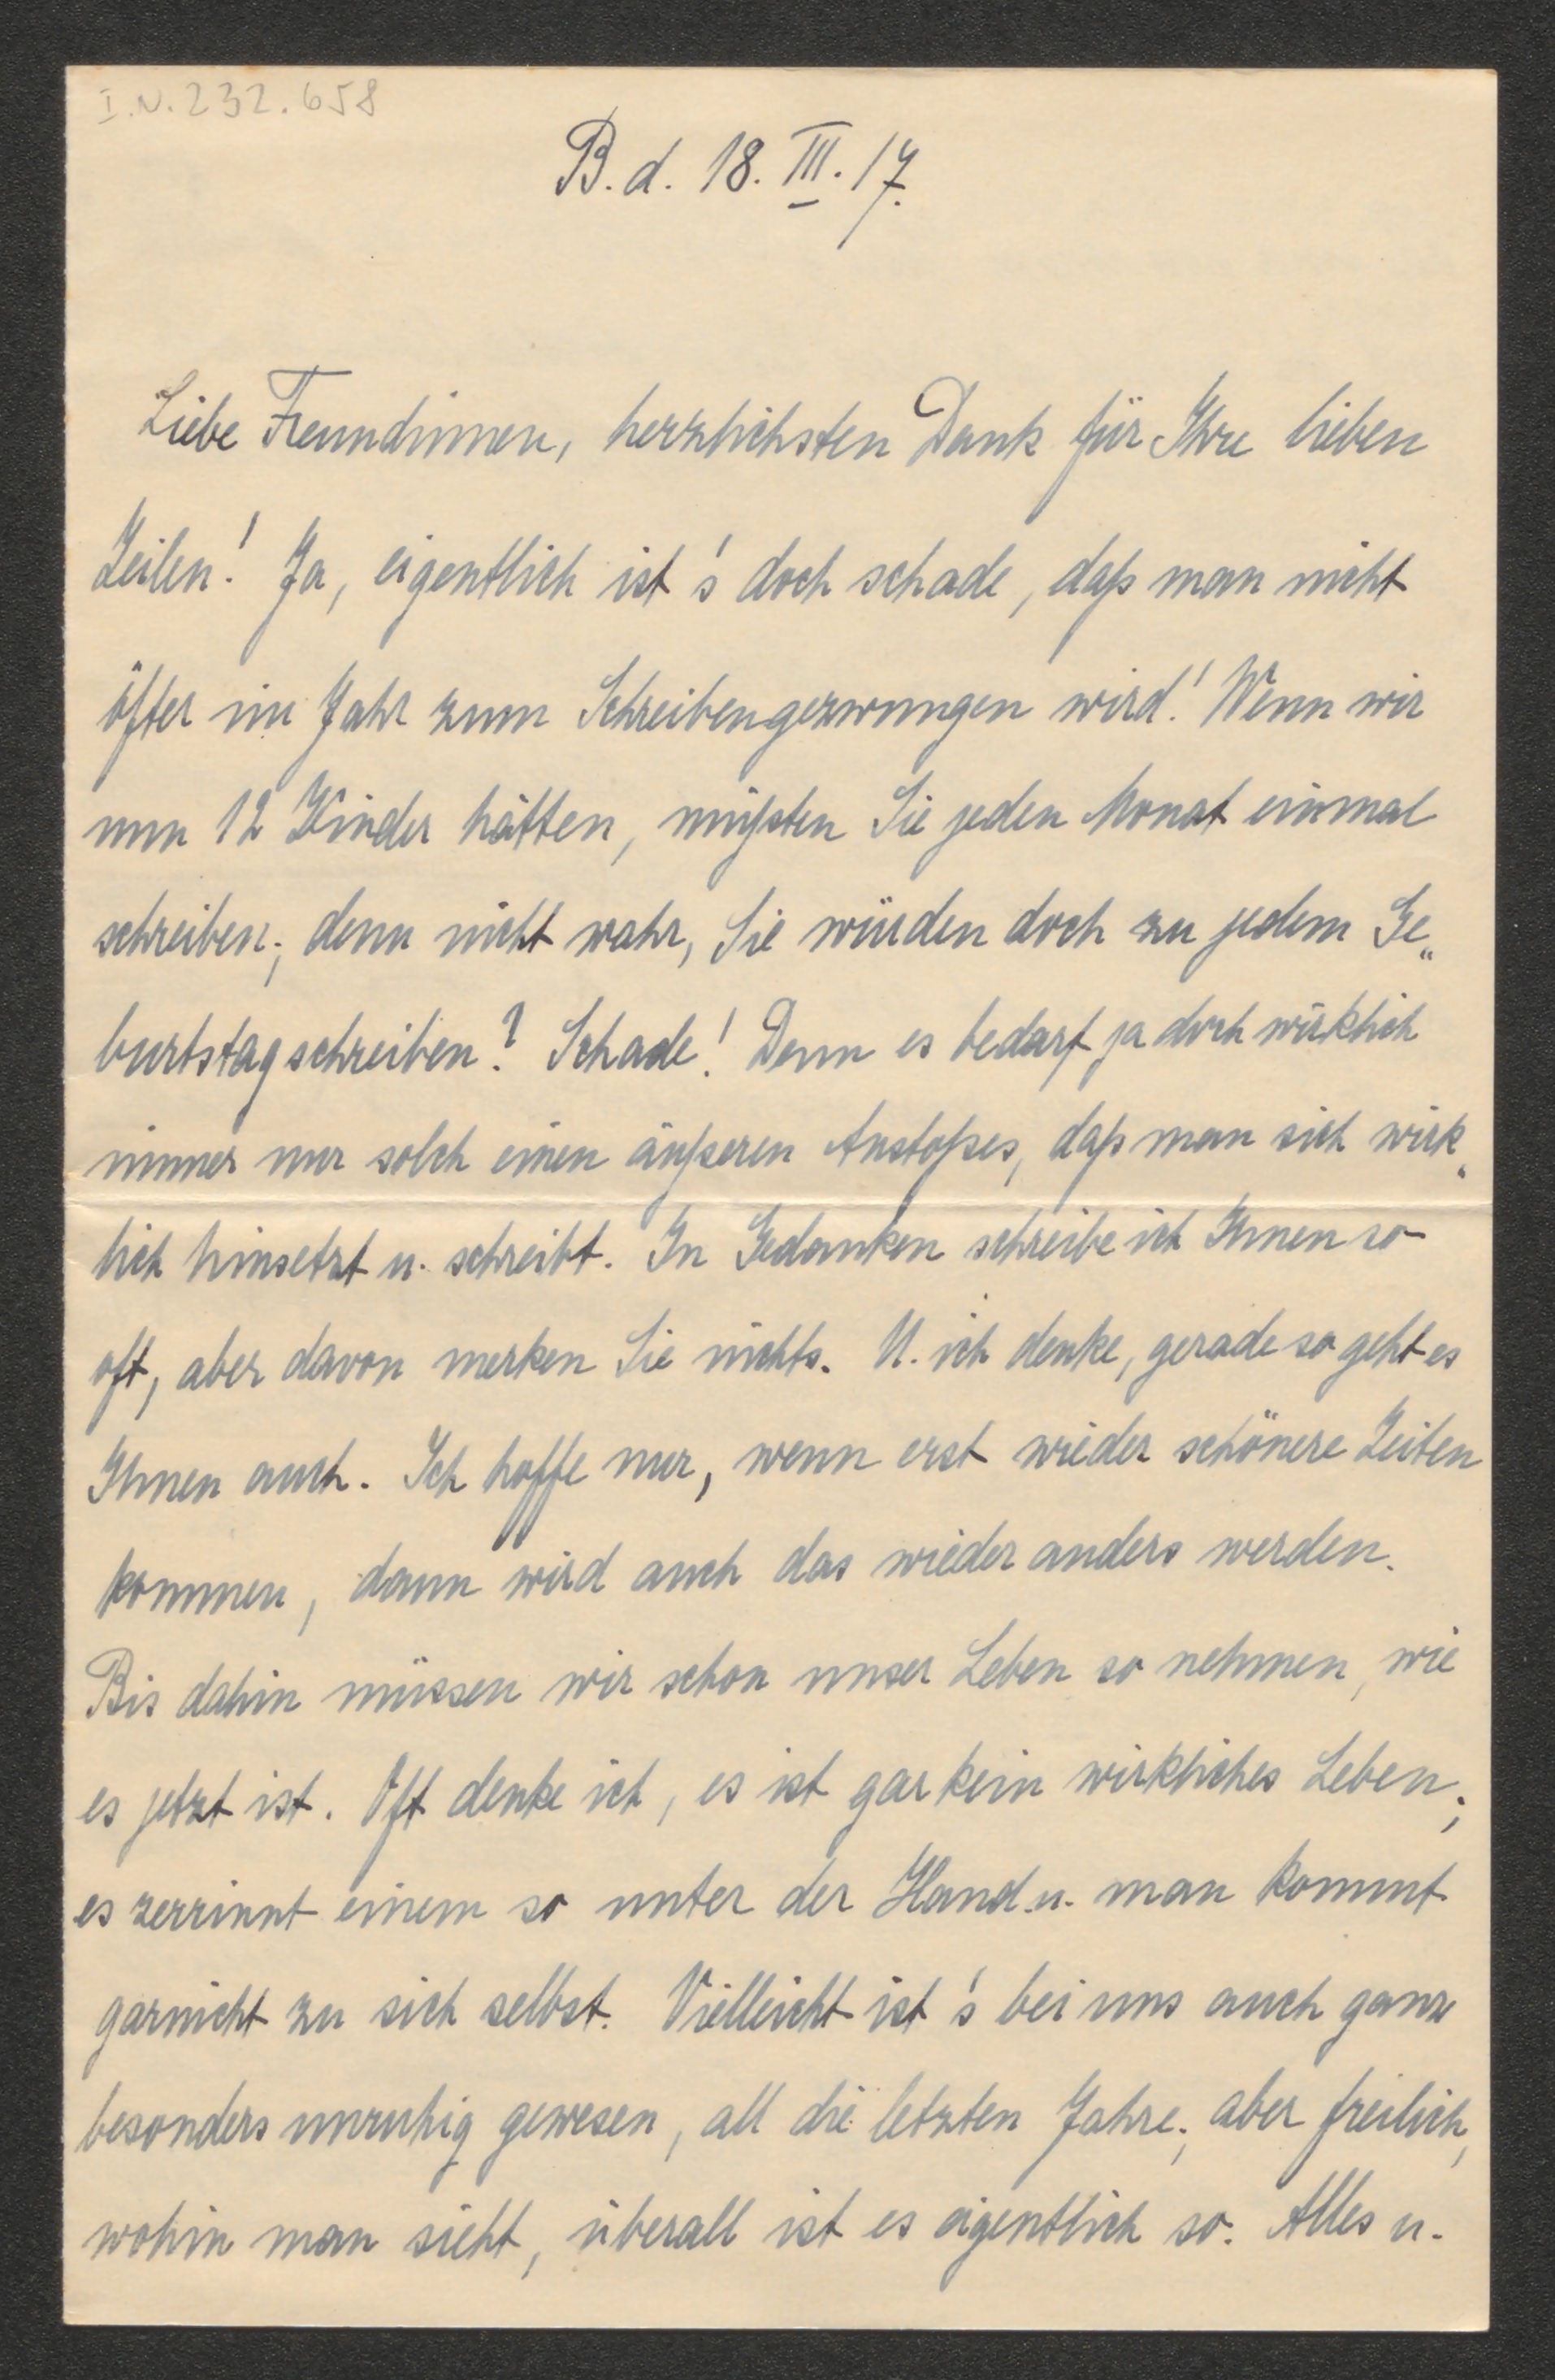 I.N. 232.658
B. d. 18. III. 17.
Liebe Freundinnen, herzlichsten Dank für Ihre lieben
Zeilen! Ja, eigentlich ist's doch schade, daß man nicht
öfter im Jahr zum Schreiben gezwungen wird! Wenn wir
nun 12 Kinder hätten, müßten Sie jeden Monat einmal
schreiben; denn nicht wahr, Sie würden doch zu jedem Ge„
burtstag schreiben? Schade! Denn es bedarf ja doch wirklich
immer nur solch einen äußeren Anstoßes, daß man sich wirk„
lich hinsetzt u. schreibt. In Gedanken schreibe ich Ihnen so
oft, aber davon merken Sie nichts. U. ich denke, gerade so geht es
Ihnen auch. Ich hoffe nur, wenn erst wieder schönere Zeiten
kommen, dann wird auch das wieder anders werden.
Bis dahin müssen wir schon unser Leben so nehmen, wie
es jetzt ist. Oft denke ich, es ist gar kein wirkliches Leben;
es zerrinnt einem so unter der Hand u. man kommt
garnicht zu sich selbst. Vielleicht ist's bei uns auch ganz
besonders unruhig gewesen, all die letzten Jahre; aber freilich,
wohin man sieht, überall ist es eigentlich so. Alles u.